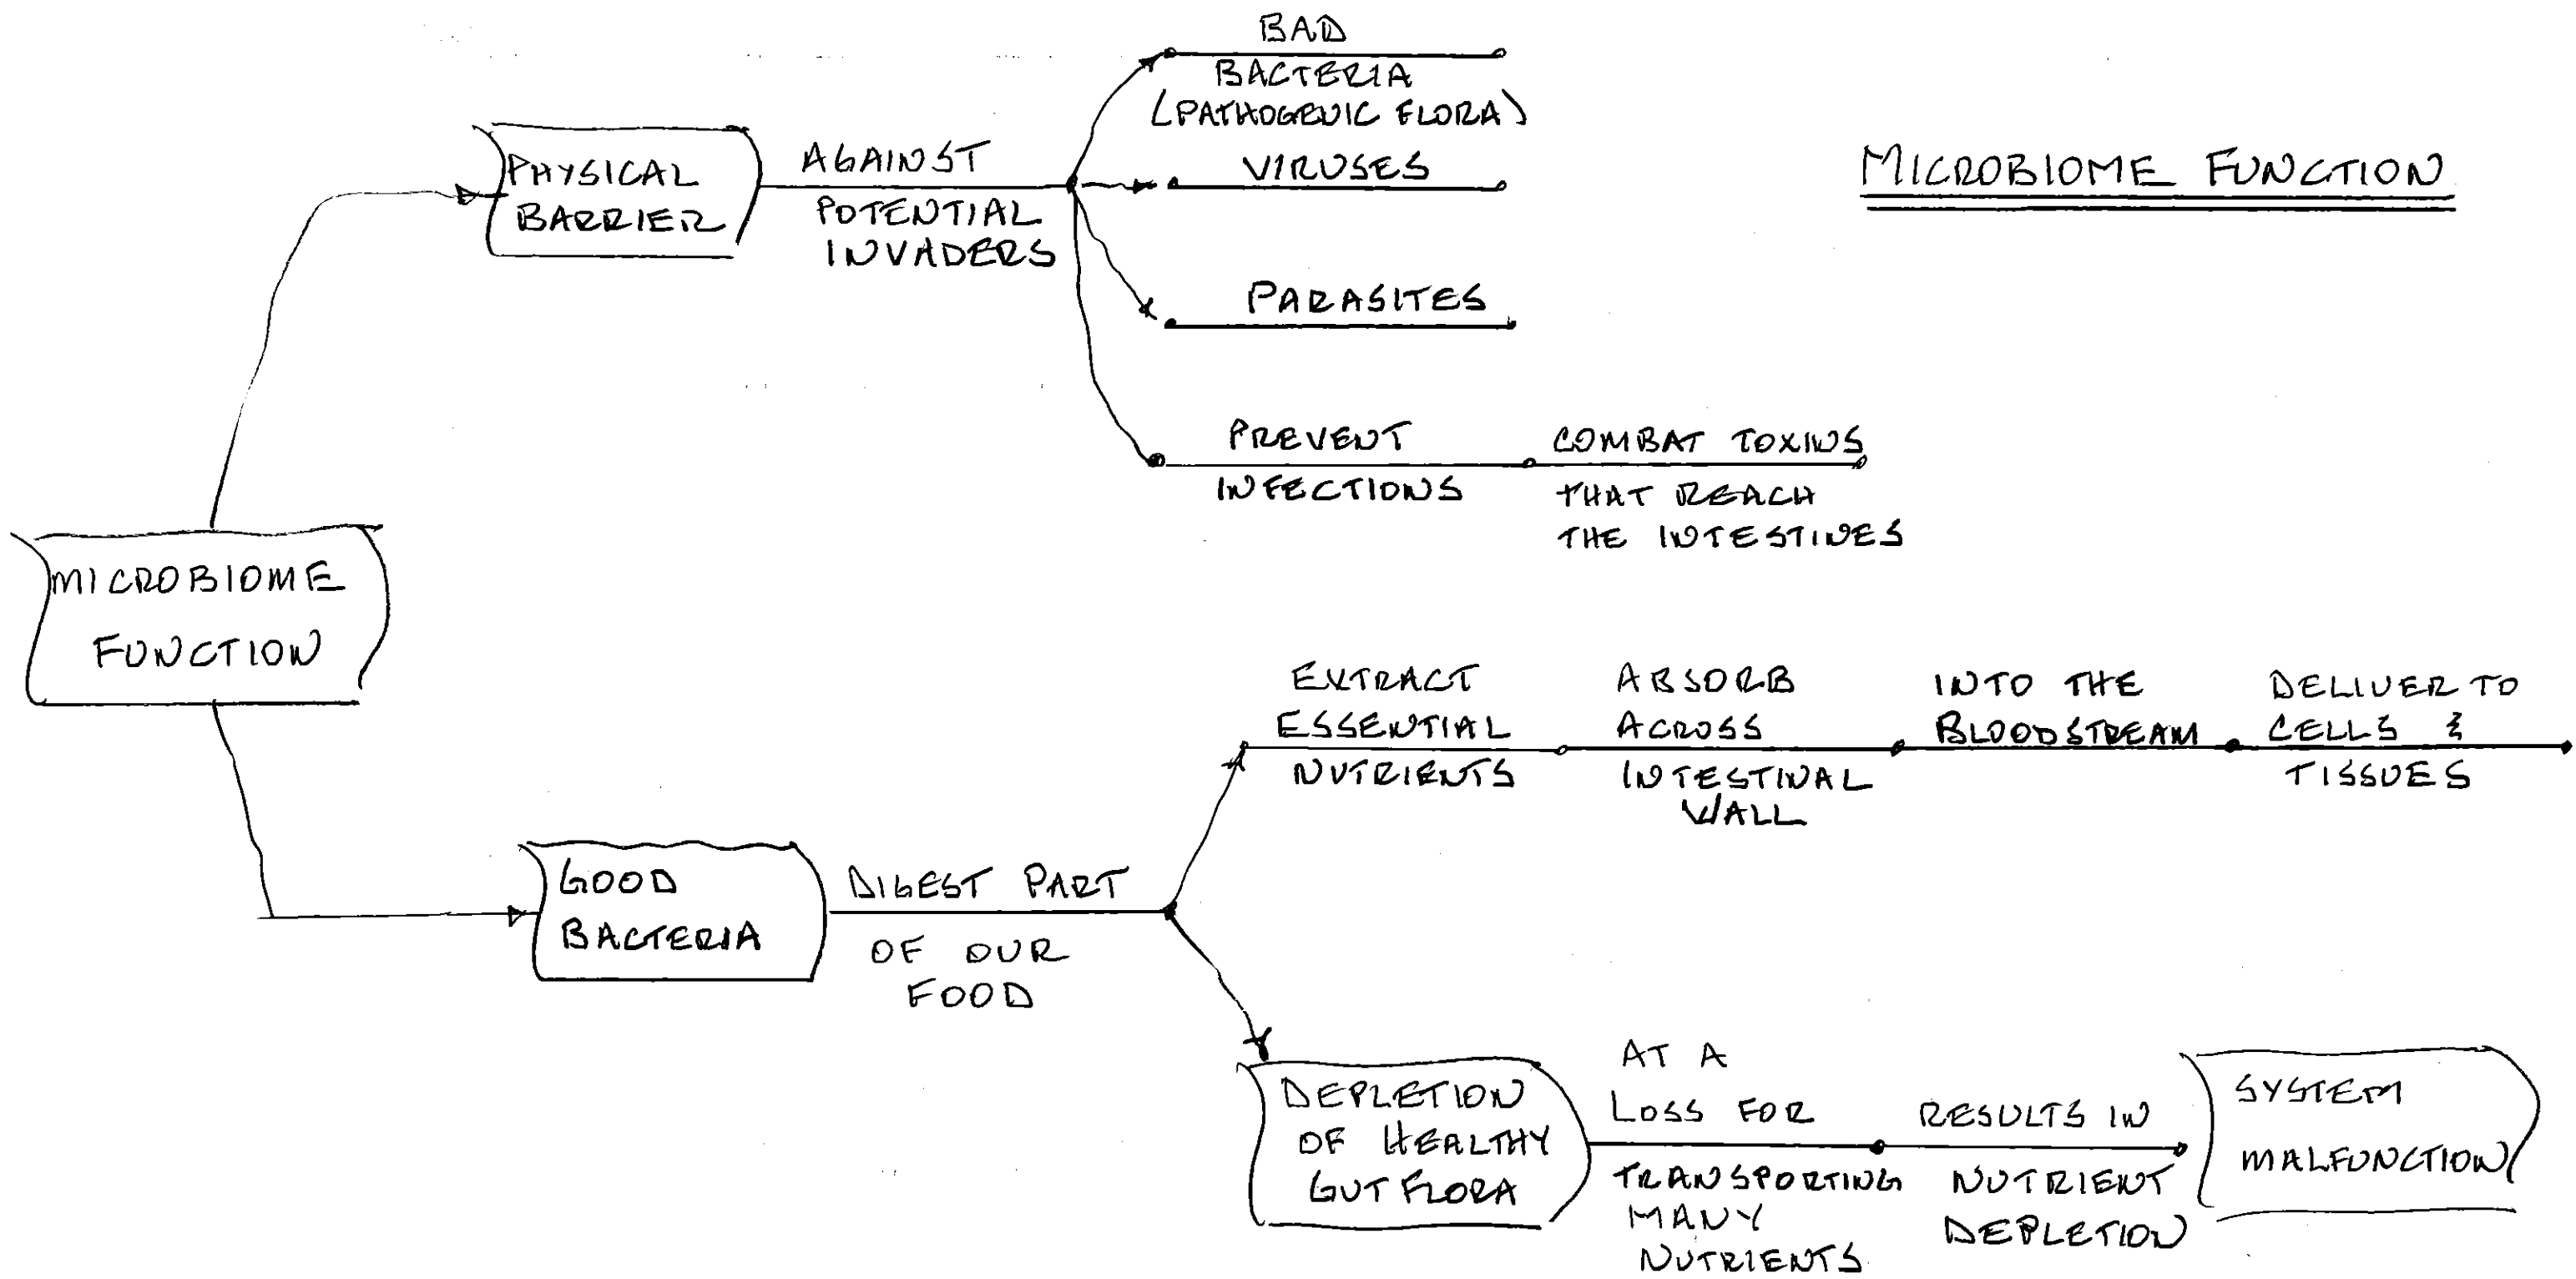 MICROBIOME FUNCTION
MICROBIOME
FUNCTION
PHYSICAL
BARRIER
AGAINST
POTENTIAL
INVADERS
BAD
BACTERIA
(PATHOGENIC FLORA)
VIRUSES
PARASITES
PREVENT
INFECTIONS
COMBAT TOXINS
THAT REACH
THE INTESTINES
GOOD
BACTERIA
DIGEST PART
OF OUR
FOOD
EXTRACT
ESSENTIAL
NUTRIENTS
ABSORB
ACROSS
INTESTINAL
WALL
INTO THE
BLOODSTREAM
DELIVER TO
CELLS &
TISSUES
DEPLETION
OF HEALTHY
GUT FLORA
AT A
LOSS FOR
TRANSPORTING
MANY
NUTRIENTS
RESULTS IN
NUTRIENT
DEPLETION
SYSTEM
MALFUNCTION